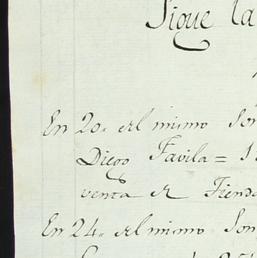 Sigue la
En 20. del mismo Son
Diego Favila = 1
venta de Tienda
En 24. del mismo Son